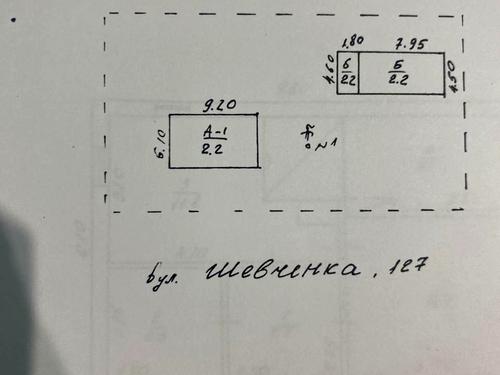 1.80 7.95
4.60 б/2.2 Б/2.2 4.50
9.20
6.10 А-1/2.2
№1
бул. Шевченка, 127